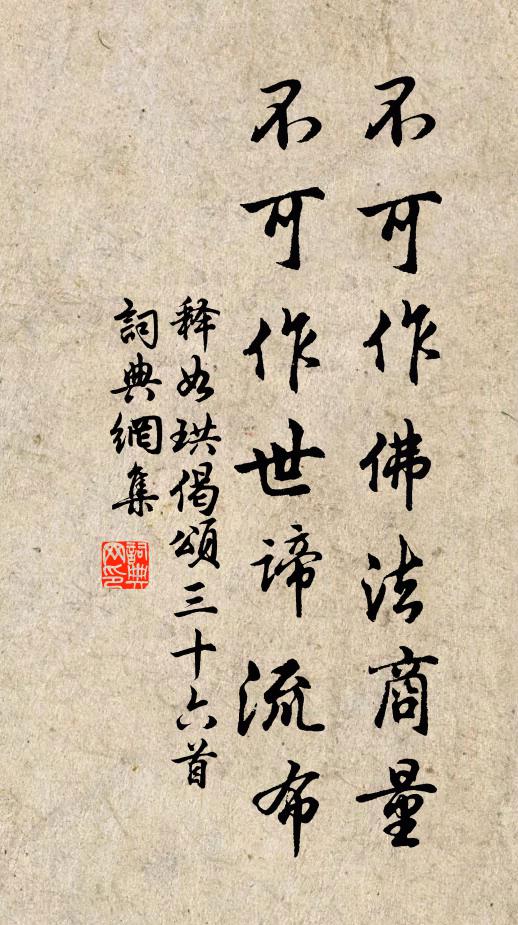 不可作佛法商量
不可作世諦流布
释如珙偈頌三十六首
詞典網集
詞典網印